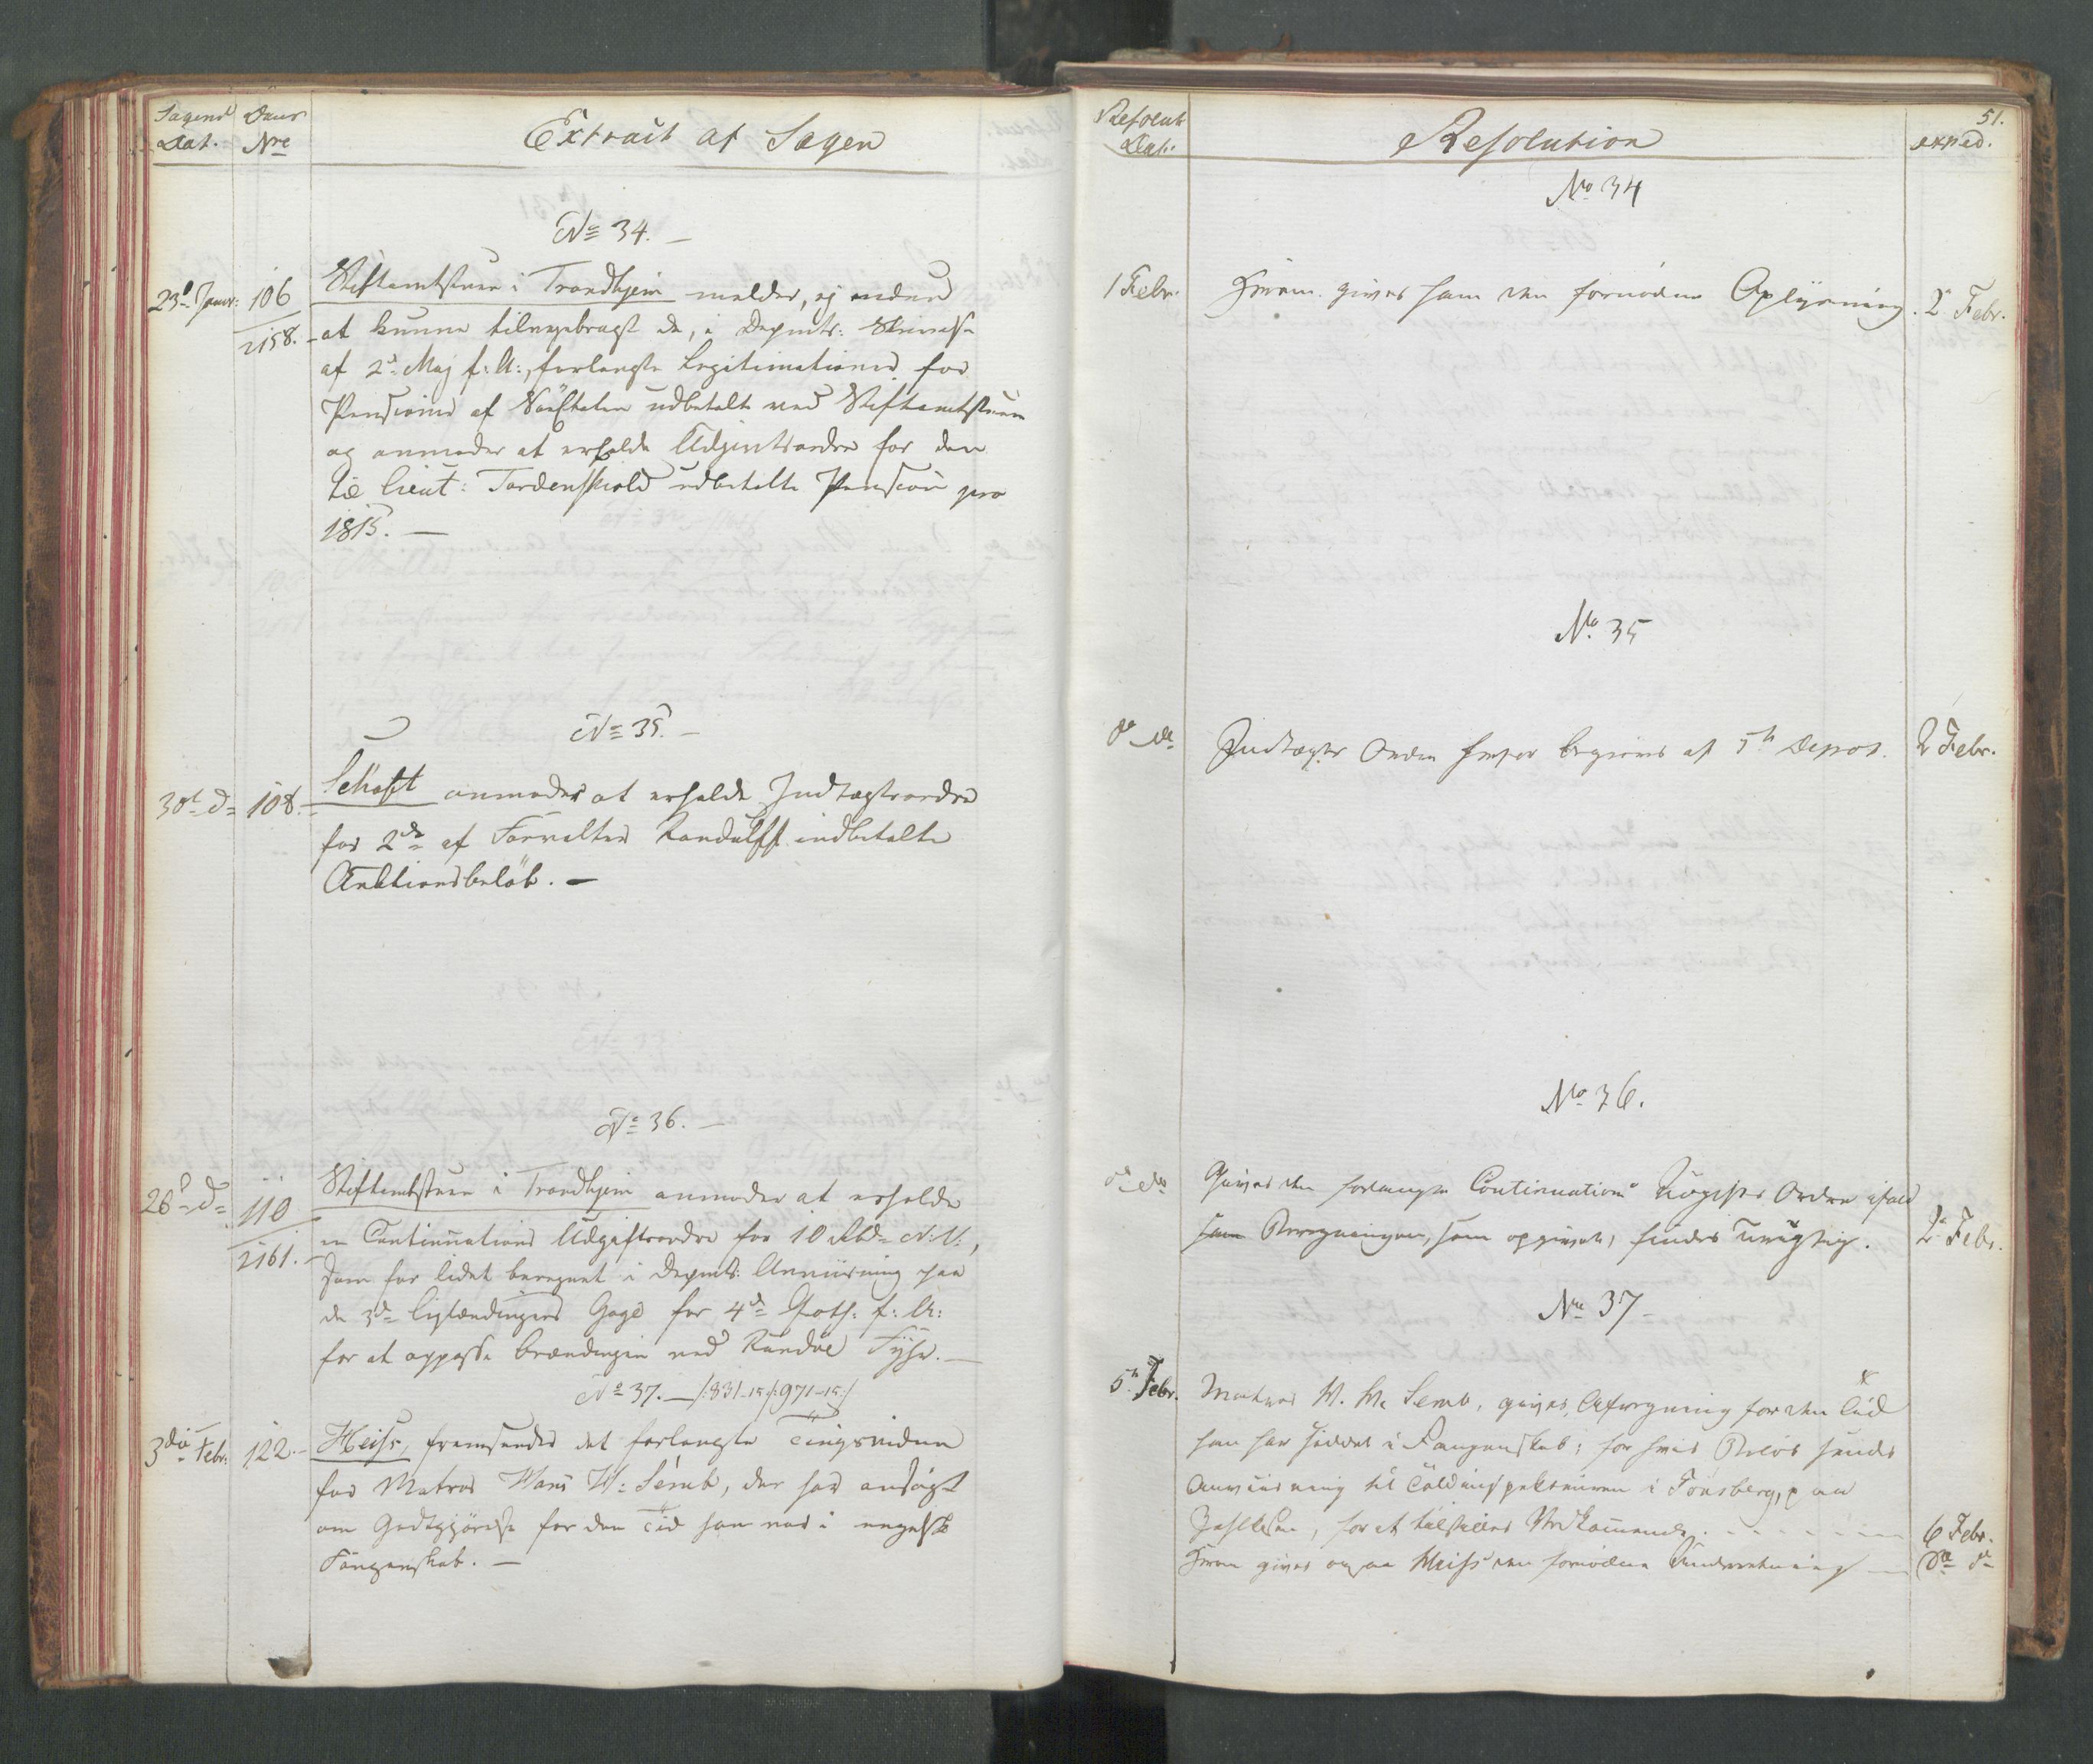 Sagens Dat.
Daus Nre
Extrait af Sagen
No 34. –
23d Janv: 106
Stiftamtstuen i Trondhjem melder, ej endnu
2158. at kunne tilvejebragt de, i Depmts: Skrivelse
af 2d Maj f: A:, forlangte Legitimationer for
Pensioner af Söeftaten udbetalt ved Stiftamtstuen
og anmoder at erholde Udgivtsordre for den
til Lieut: Tordenskiold udbetalte Pension pro
1815. –
No 35. –
30t d= 108.
Schöft anmoder at erholde Indtægtsordre
for 2de af Forvalter Randulff indbetalte
Auktionsbelöb. –
No 36. –
26d d= 110
Stiftamtstuen i Trondhjem anmoder at erholde
2161. en Continuations Udgiftsordre for 10 Rbd N: V:,
som for lidet beregnet i Depmts: Anviisning paa
de 3de Gage for 4de f: A:
for at oppasse Brændingen ved Fyhr. –
No 37. – /:831-15/:971-15:/
3die Febr: 122. –
Heiss, fremsender det forlangte Tingsvidne
for Matros Hans W: Semb, der har ansögt
om Godtgjörelse for den Tid han var i engelsk
Fangenskab. –
51.
Resolut Dat.
Resolution
exped.
No 34
1 Febr. Herom gives ham den fornödne Oplysning. 2 Febr.
No 35
do do Indtægts Ordre herfor begjeres af 5te Depos. 2 Febr.
No 36.
do do Gives den forlangte Continuations Udgifts Ordre ifald
Beregningen, som opgivet, findes rigtig. 2 Febr.
No 37 –
5t Febr. Matros H. W. Semb, gives Afregning for den Tid
han har siddet i Fangenskab; for hvis Belöb sendes
Anviisning til Toldinspekteuren i Tönsberg, paa
Zahlkassen, for at tilstilles Vedkommende. 6 Febr.
Herom gives ogsaa Heiss den fornödne Underretning – do d